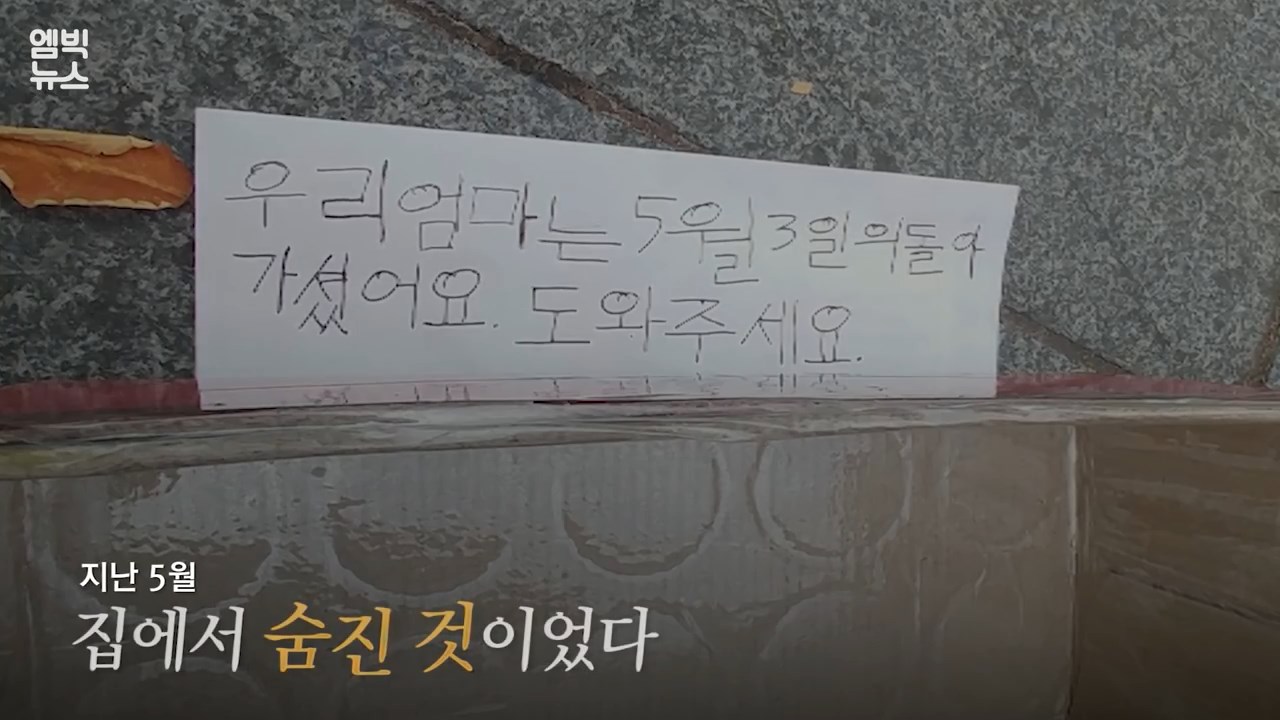 엠빅
뉴스
우리엄마는 5월3일의돌아
가셨어요. 도와주세요.
지난 5월
집에서 숨진 것이었다